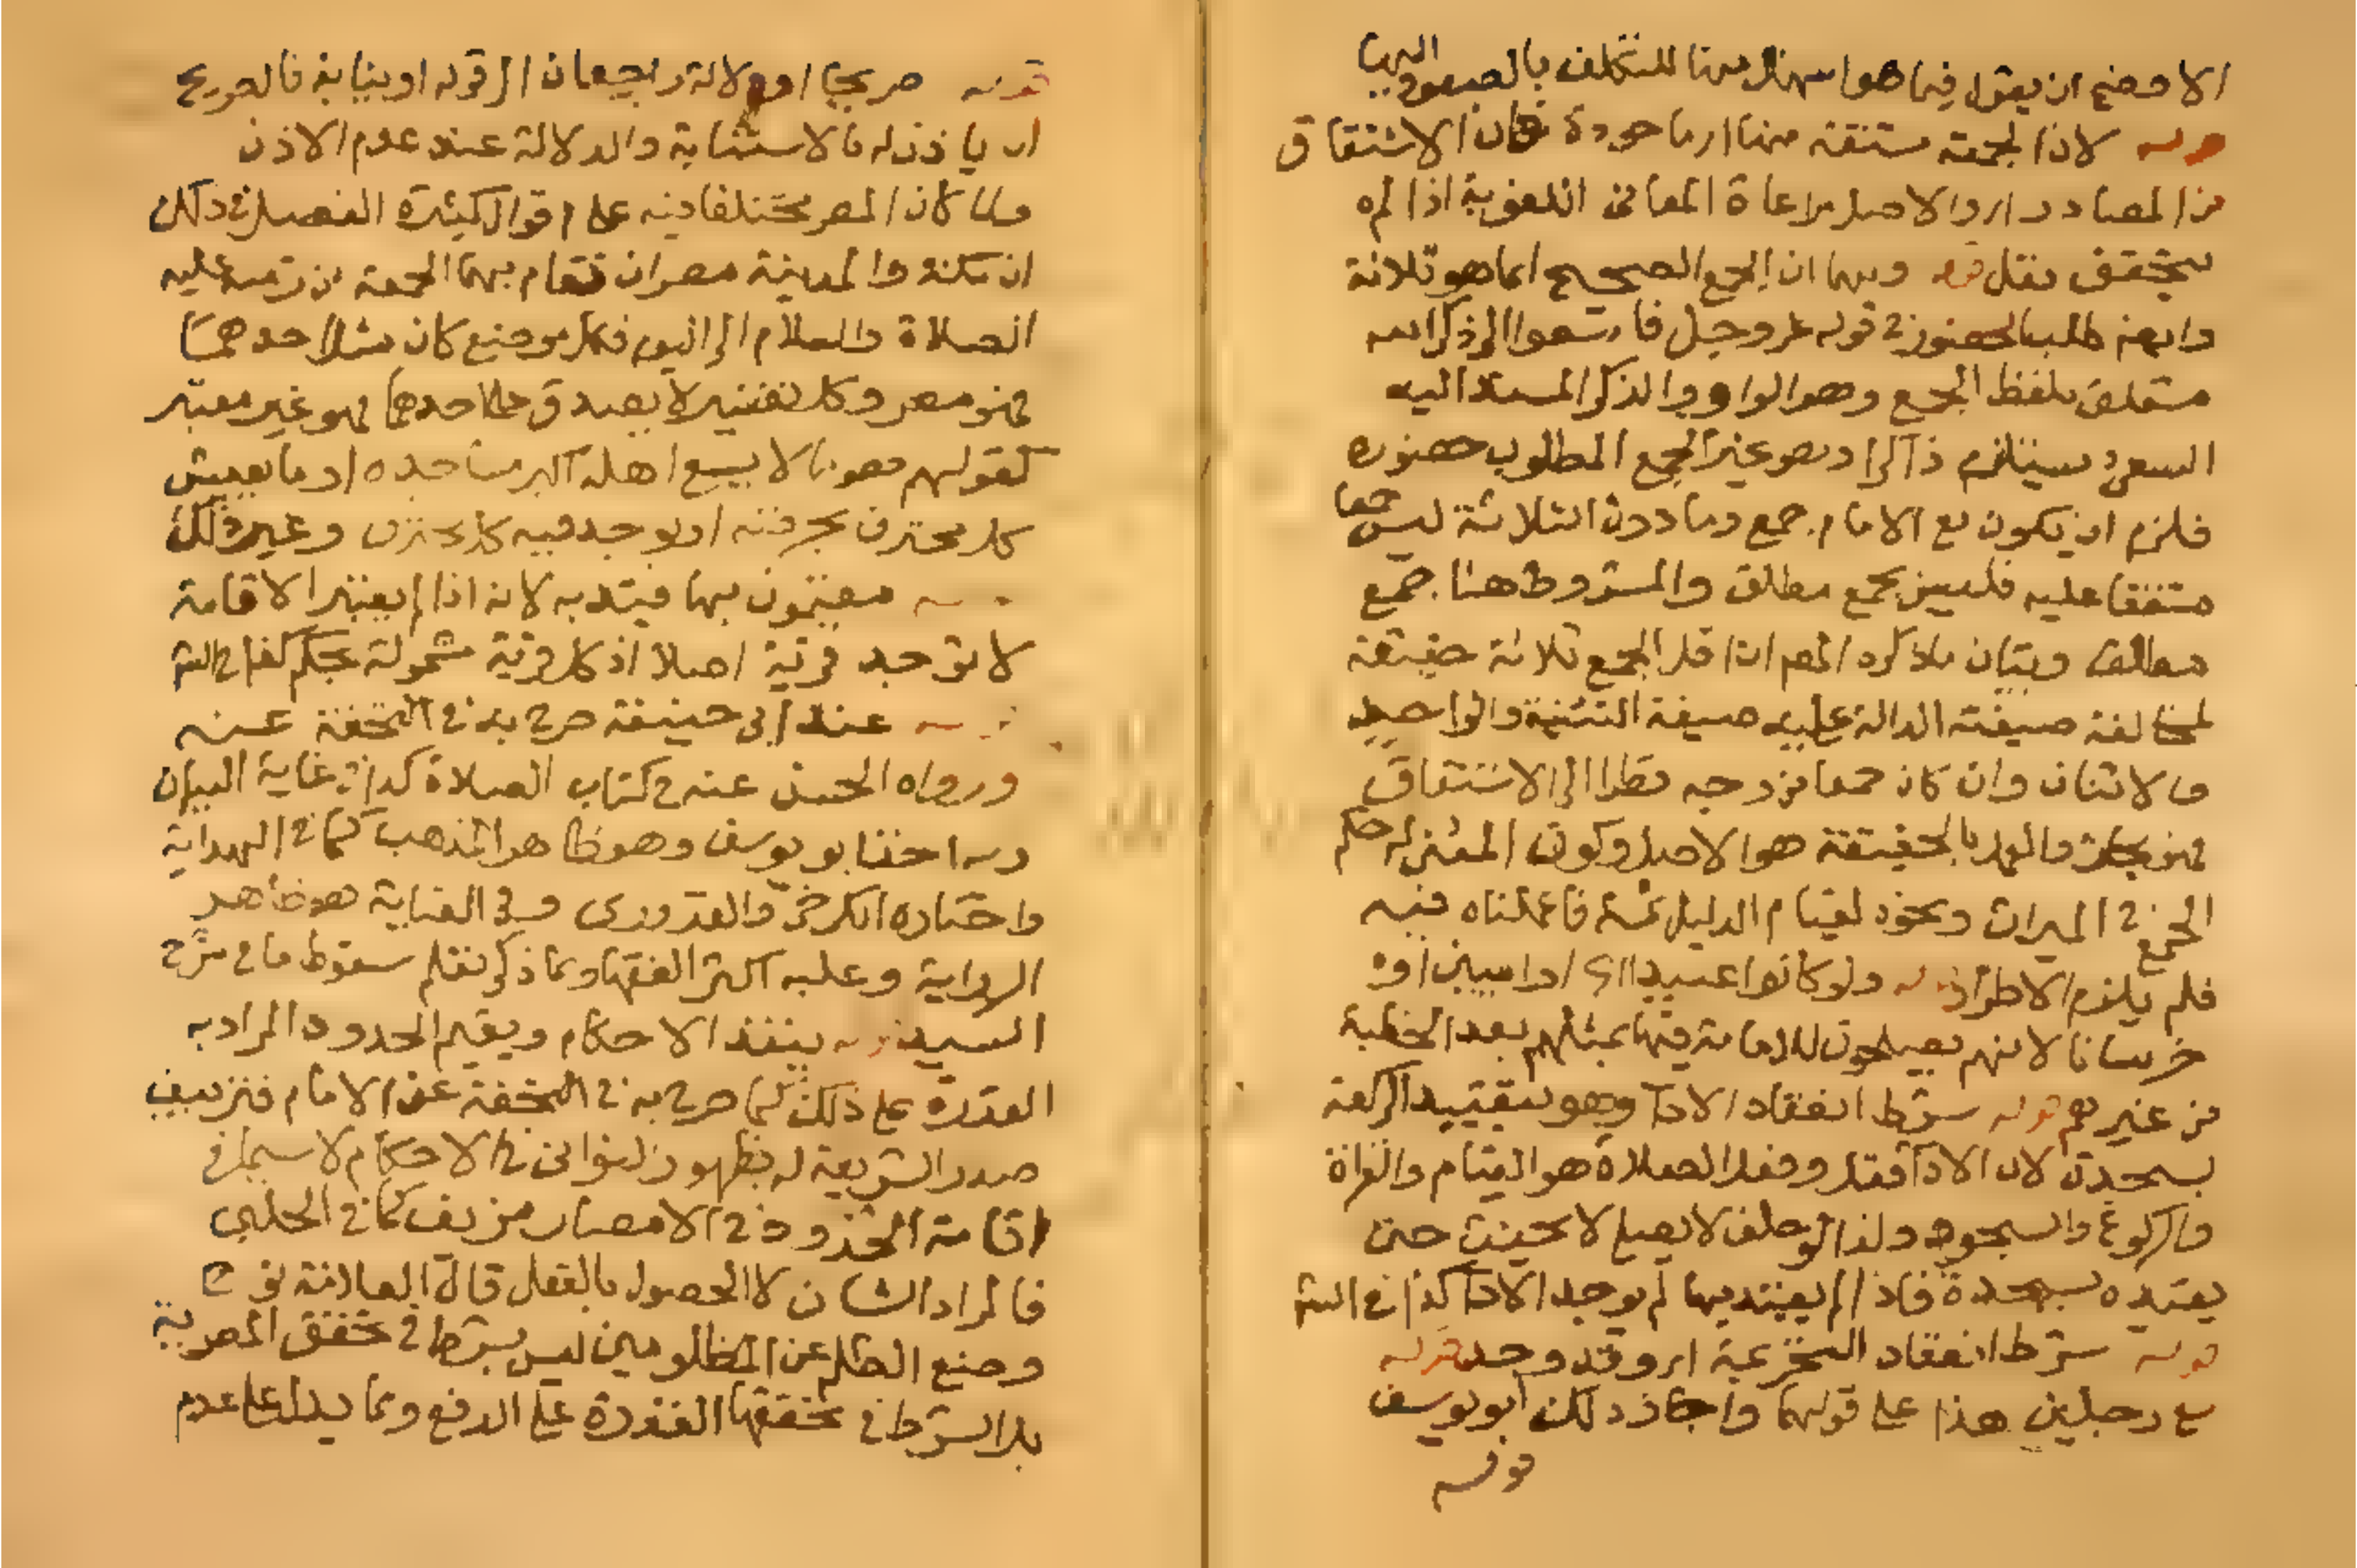 الاوضح ان يقول فيما هو اسهل من التكلف بالصعود اليها
قوله لان الجمعة مشتقة منها اي ماخوذة فان الاشتقاق
من المصادر اي والاصل مراعاة المعاني اللغوية اذا لم
يتحقق نقل قوله ولهما ان الجمع الصحيح انما هو ثلاثة
وايضا طلب الحضور في قوله عز وجل فاسعوا الى ذكر الله
متعلق بلفظ الجمع وهو الواو والذكر المسند اليه
السعي يستلزم ذاكرا وهو غير الجمع المطلوب حضوره
فلزم ان يكون مع الامام جمع وما دون الثلاثة ليس جمعا
متفقا عليه فليس بجمع مطلق والمشروط هنا جمع
مطلق وبيان ما ذكره المص ان اقل الجمع ثلاثة حقيقة
لمخالفة صيغته الدالة عليه صيغة التثنية والواحد
فالاثنان وان كان جمعا من وجه نظرا الى الاشتقاق
فهو مجاز والعمل بالحقيقة هو الاصل وكون المثنى له حكم
الجمع في الميراث ونحوه لقيام الدليل ثمة فاعملناه فيه
فلم يلزم الاطراد قوله ولو كانوا عبيدا اي او اميين او
خرسانا لانهم يصلحون للامامة فيها بمثلهم بعد الخطبة
من غيرهم قوله شرط انعقاد الادا وهو بتقييد الركعة
بسجدة لان الادا فعل وفعل الصلاة هو القيام والقراة
والركوع والسجود ولذا لو حلف لا يصلي لا يحنث حتى
يقيده بسجدة فاذا لم يقيد بها لم يوجد الادا كذا في الش
قوله شرط انعقاد التحريمة اي وقد وجد قوله
مع رجلين هذا على قولهما واجاز ذلك ابو يوسف
قوله
قوله صريحا او دلالة راجعان الى قوله او بنيابة فالصريح
ان ياذن له بالاستنابة والدلالة عند عدم الاذن
ولما كان المصر مختلفا فيه على اقوال كثيرة الفصل في ذلك
ان مكة والمدينة مصران تقام بهما الجمعة من زمنه عليه
الصلاة والسلام الى اليوم فكل موضع كان مثل احدهما
فهو مصر وكل تفسير لا يصدق على احدهما فهو غير معتبر
كقولهم هو ما لا يسع اهله اكبر مساجده او ما يعيش
كل محترف بحرفته او يوجد فيه كل محترف وغير ذلك
قوله مقيمون بها قيد به لانه اذا لم يعتبر الاقامة
لا توجد قرية اصلا اذ كل قرية مشمولة بحكم كذا في الش
قوله عند ابي حنيفة صرح به في التحفة عنه
ورواه الحسن عنه في كتاب الصلاة كذا في غاية البيان
وبه اخذ ابو يوسف وهو ظاهر المذهب كما في الهداية
واختاره الكرخي والقدوري وفي العناية هو ظاهر
الرواية وعليه اكثر الفقها وبما ذكر نعلم سقوط ما في شرح
السيد قوله ينفذ الاحكام ويقيم الحدود المراد به
القدرة على ذلك كما صرح به في التحفة عن الامام فتزييف
صدر الشريعة له بظهور التواني في الاحكام لا سيما في
اقامة الحدود في الامصار مزيف كما في الحلبي
فالمراد الشان لا الحصول بالفعل قال العلامة نوح
ومنع الظلم عن المظلومين ليس بشرط في تحقق المصرية
بل الشرط في تحققها القدرة على الدفع ومما يدل على عدم